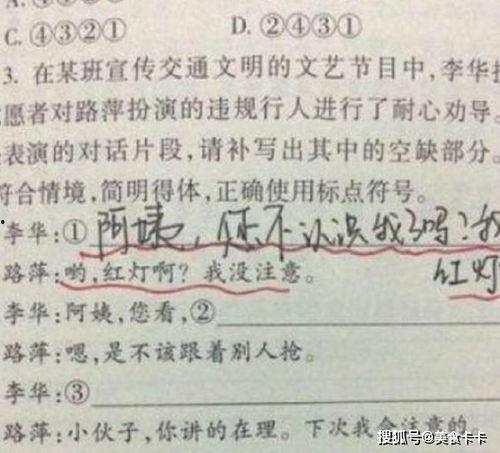 C. ④③②① D. ②④③①
3. 在某班宣传交通文明的文艺节目中,李华
愿者对路萍扮演的违规行人进行了耐心劝导。
表演的对话片段,请补写出其中的空缺部分。
符合情境,简明得体,正确使用标点符号。
李华:①阿姨,您不认识我了吗?我
路萍:哟,红灯啊?我没注意。
红灯
李华:阿姨,您看,②
路萍:嗯,是不该跟着别人抢。
李华:③
路萍:小伙子,你讲的在理。下次我会注意的
搜狐号@美食卡卡